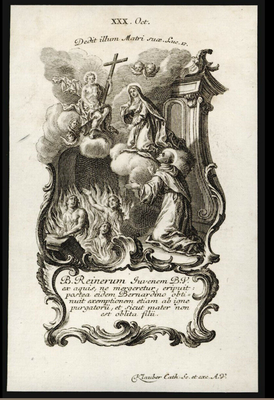 XXX. Oct.
Dedit illum Matri suæ. Luc. 17.
B. Reinerum Juvenem B.V.
ex aquis, ne mergeretur, eripuit:
postea eidem Bernardino obti-
nuit exemptionem etiam ab igne
purgatorii, et sicut mater non
est oblita filii.
Klauber Cath. Sc. et exc. A.V.